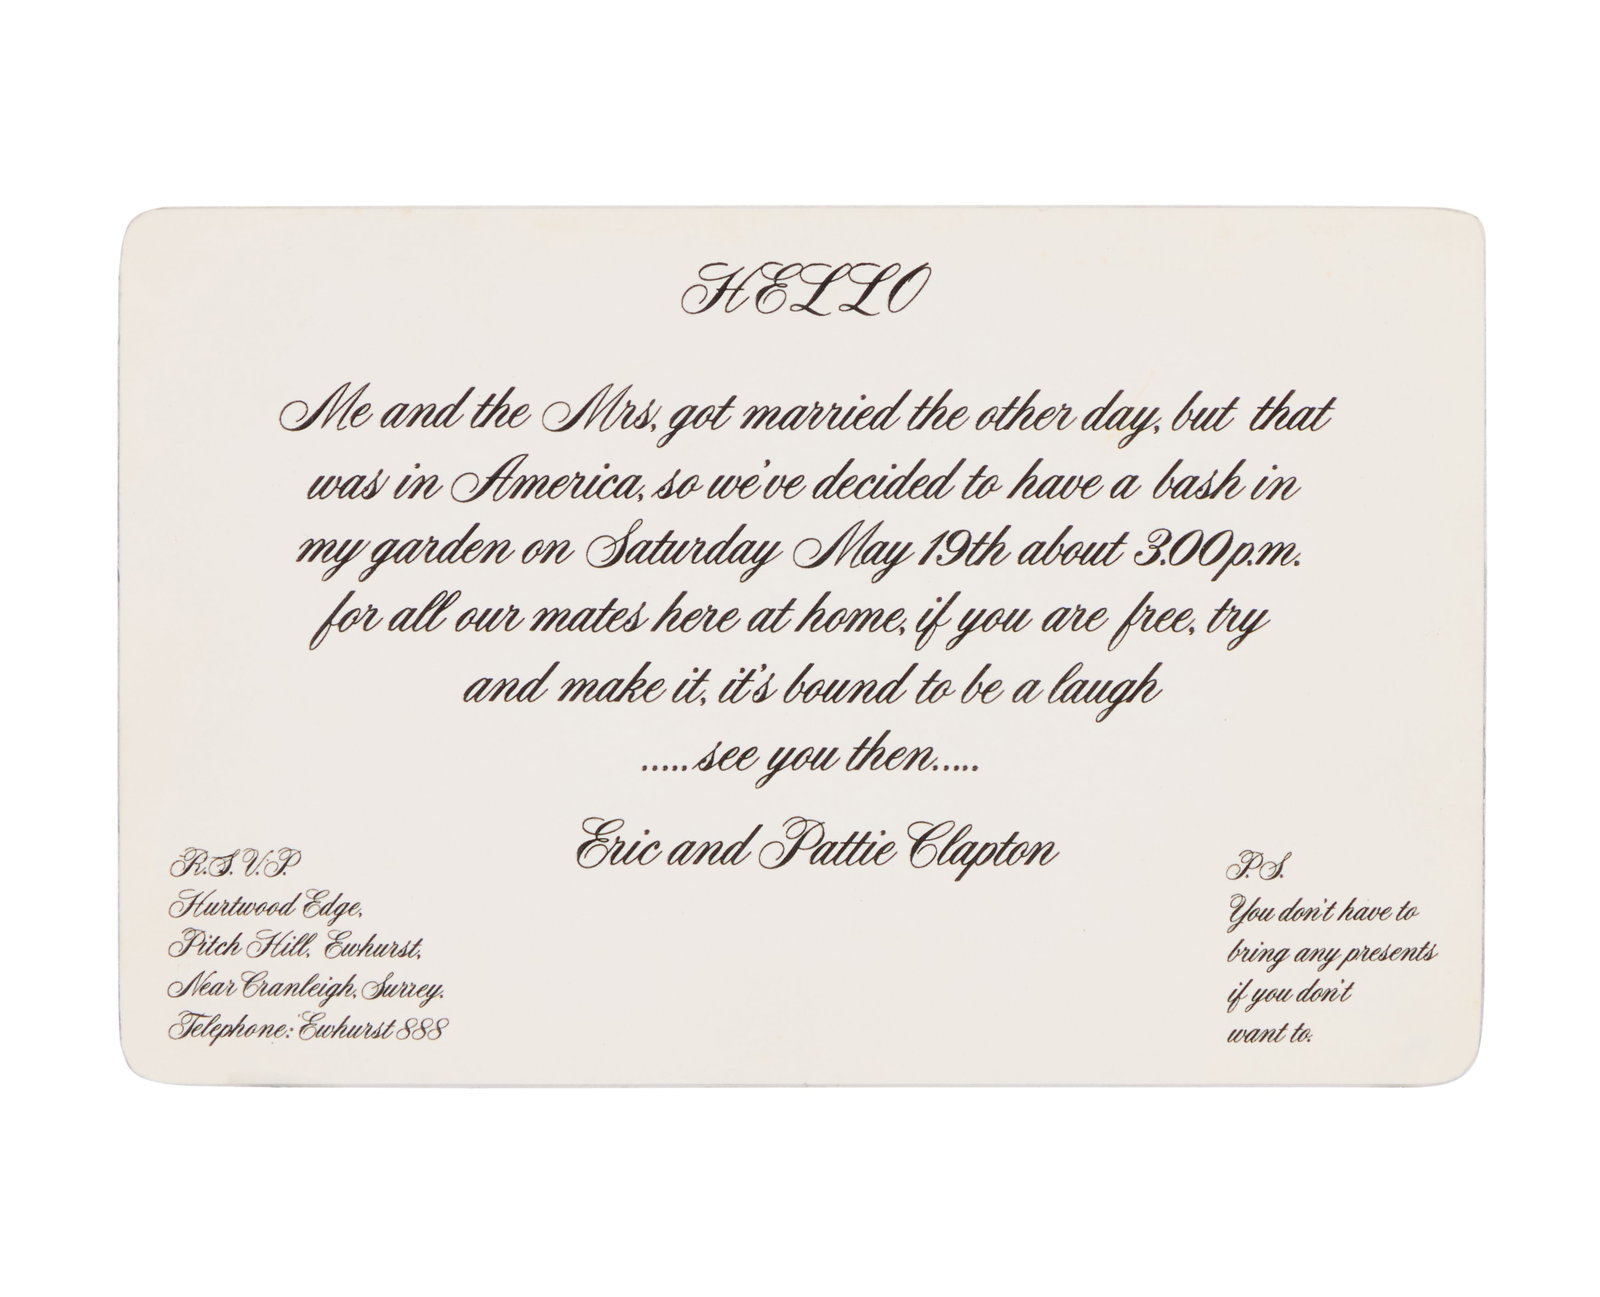 HELLO
Me and the Mrs, got married the other day, but that
was in America, so we've decided to have a bash in
my garden on Saturday May 19th about 3.00 p.m.
for all our mates here at home, if you are free, try
and make it, it's bound to be a laugh
.....see you then.....
Eric and Pattie Clapton
R.S.V.P
Hurtwood Edge,
Pitch Hill, Ewhurst,
Near Cranleigh, Surrey.
Telephone: Ewhurst 888
P.S.
You don't have to
bring any presents
if you don't
want to.